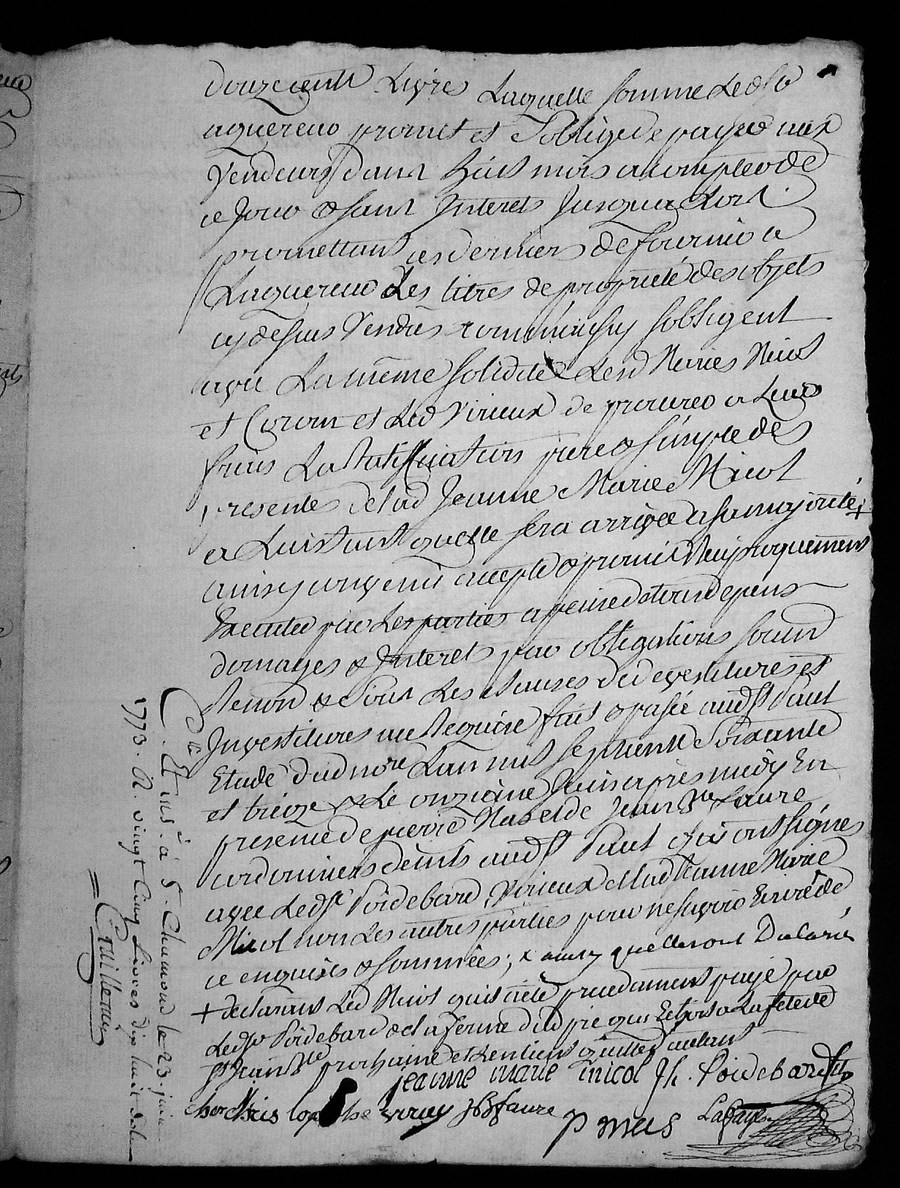 douze cents Livres Laquelle somme Led Sr
aquereur promet et s'oblige de payer aux
Vendeurs dans huit mois a compter de
ce jour & sans Interets Jusqu'a Lors
promettant ces derniers de fournir a
Laquereur Les titres de propriété des objets
cy dessus Vendus comme aussy s'obligent
avec La même solidité Lesd Maries Nicol
et Coron et Led Virieux de procurer a Leurs
frais La Ratification pure & simple des
presentes de lad Jeanne Marie Nicol
a Linstant quelle sera arrivée a sa majorité +
ainsy convenu accepté & promis Reciproquement
Executer par Les parties a peine de tous depens
domages & Interets par obligations soum
Renon & Sous Les clauses de devestitures et
Investitures au Requises fait & passé aud St Paul
Etude dud nore Lan mil sept cent Soixante
et treize & Le onzieme Juin apres midy En
presence de pierre Nabel de Jean Bte faure
cordonniers demts aud St Paul qui ont signés
avec Led Sr Poidebard, Virieux et lad Jeanne Marie
Nicol non Les autres parties pour ne sçavoir Ecrire de
ce enquises & sommées; x ainsy quelles ont Declaré
+ declarant Led Nicol qu'il a été precedament payé par
Led Sr Poidebard de la ferme du pre qui Echoira La fete de
St Jean Bte prochaine
jeanne marie nicol Jh. Poidebard
verieu JB faure
Lafay
C.lé Et ins.é à S.t Chamond le 23. juin
1773. R. vingt cinq Livres dix huit sols